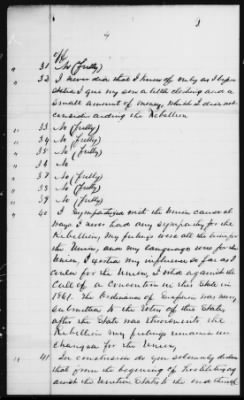 4
3
" 31 No (fully)
" 32 I never did that I know of only as I before
stated I gave my son a little clothing and a
small amount of money, which I does not
consider aiding the Rebellion
" 33 No (fully)
" 34 No (fully)
" 35 No (fully)
" 36 No
" 37 No (fully)
" 38 No (fully)
" 39 No (fully)
" 40 I Sympathized with the Union cause al
ways I never had any sympathy for the
Rebellion, My feelings were all the time for
the Union, and my language were for the
Union, I exerted my influence so far as I
could for the Union, I voted against the
Call of a Convention in this State in
1861. The Ordinance of Secession was never
submitted to the Voters of this State,
after the State was
Rebellion my feelings remain un
changed for the Union,
" 41 In conclusion do you solemnly declare
that from the beginning of hostilities
against the United States to the end thereof